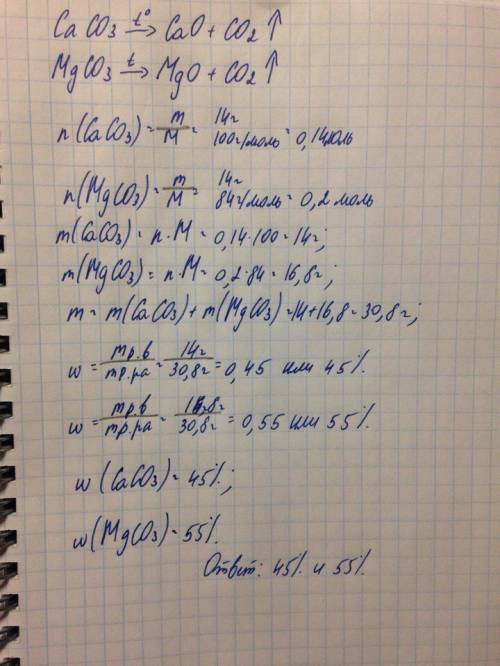 CaCO3 t°→ CaO + CO2 ↑
MgCO3 t→ MgO + CO2 ↑
n(CaCO3) = m/M = 14г/100г/моль = 0,14моль
n(MgCO3) = m/M = 14г/84г/моль = 0,2 моль
m(CaCO3) = n·M = 0,14·100 = 14г;
m(MgCO3) = n·M = 0,2·84 = 16,8г;
m = m(CaCO3) + m(MgCO3) = 14+16,8 = 30,8г;
w = mр.в/mр.ра = 14г/30,8г = 0,45 или 45%.
w = mр.в/mр.ра = 16,8г/30,8г = 0,55 или 55%.
w(CaCO3) = 45%;
w(MgCO3) = 55%.
Ответ: 45% и 55%.